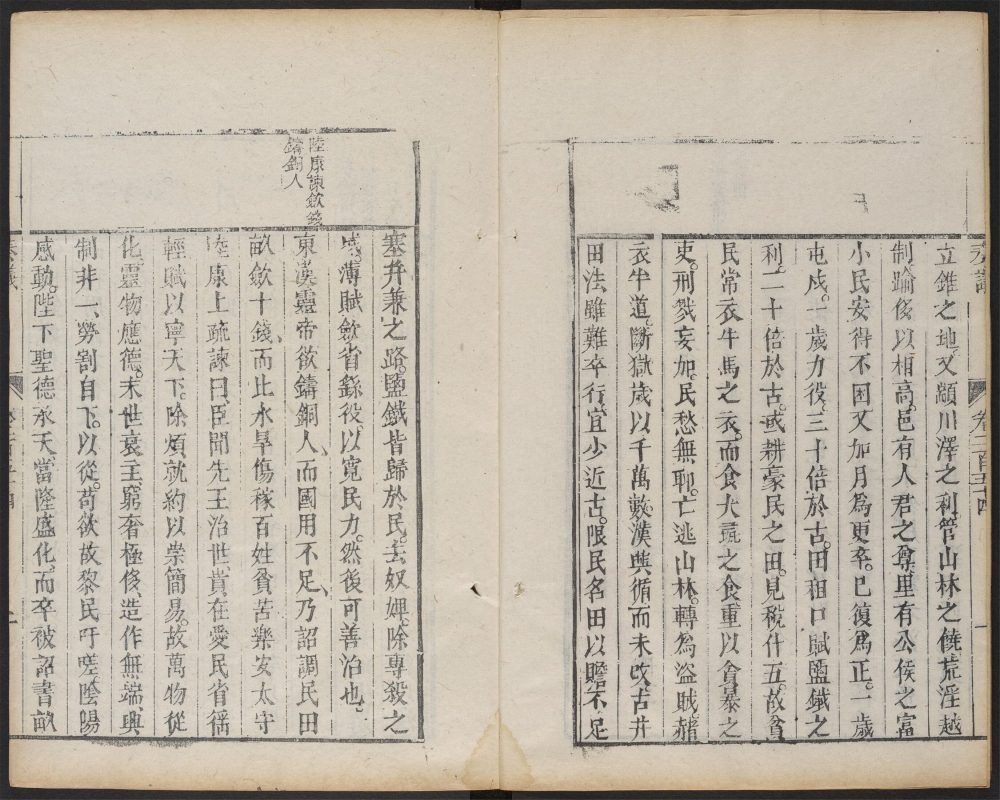 卷二百五十四
立錐之地。又顓川澤之利。管山林之饒。荒淫越
制。踰侈以相高。邑有人君之尊。里有公侯之富。
小民安得不困。又加月爲更卒。已復爲正。一歲
屯戍。一歲力役。三十倍於古。田租口賦鹽鐵之
利。二十倍於古。或耕豪民之田。見稅什五。故貧
民常衣牛馬之衣。而食犬彘之食。重以貪暴之
吏。刑戮妄加。民愁無聊。亡逃山林。轉爲盜賊。赭
衣半道。斷獄歲以千萬數。漢興。循而未改。古井
田法雖難卒行。宜少近古。限民名田以贍不足。
塞并兼之路。鹽鐵皆歸於民。去奴婢。除專殺之
威。薄賦斂。省繇役。以寬民力。然後可善治也。
陸康諫斂錢
鑄銅人
東漢靈帝欲鑄銅人、而國用不足、乃詔調民田
畝斂十錢、而比水旱傷稼、百姓貧苦、樂安太守
陸康上疏諫曰、臣聞先王治世、貴在愛民、省徭
輕賦、以寧天下。除煩就約、以崇簡易。故萬物從
化、靈物應德。末世衰主、窮奢極侈、造作無端、興
制非一、勞割自下。以從苟欲、故黎民吁嗟、陰陽
感動。陛下聖德承天、當隆盛化。而卒被詔書、畝
奏議